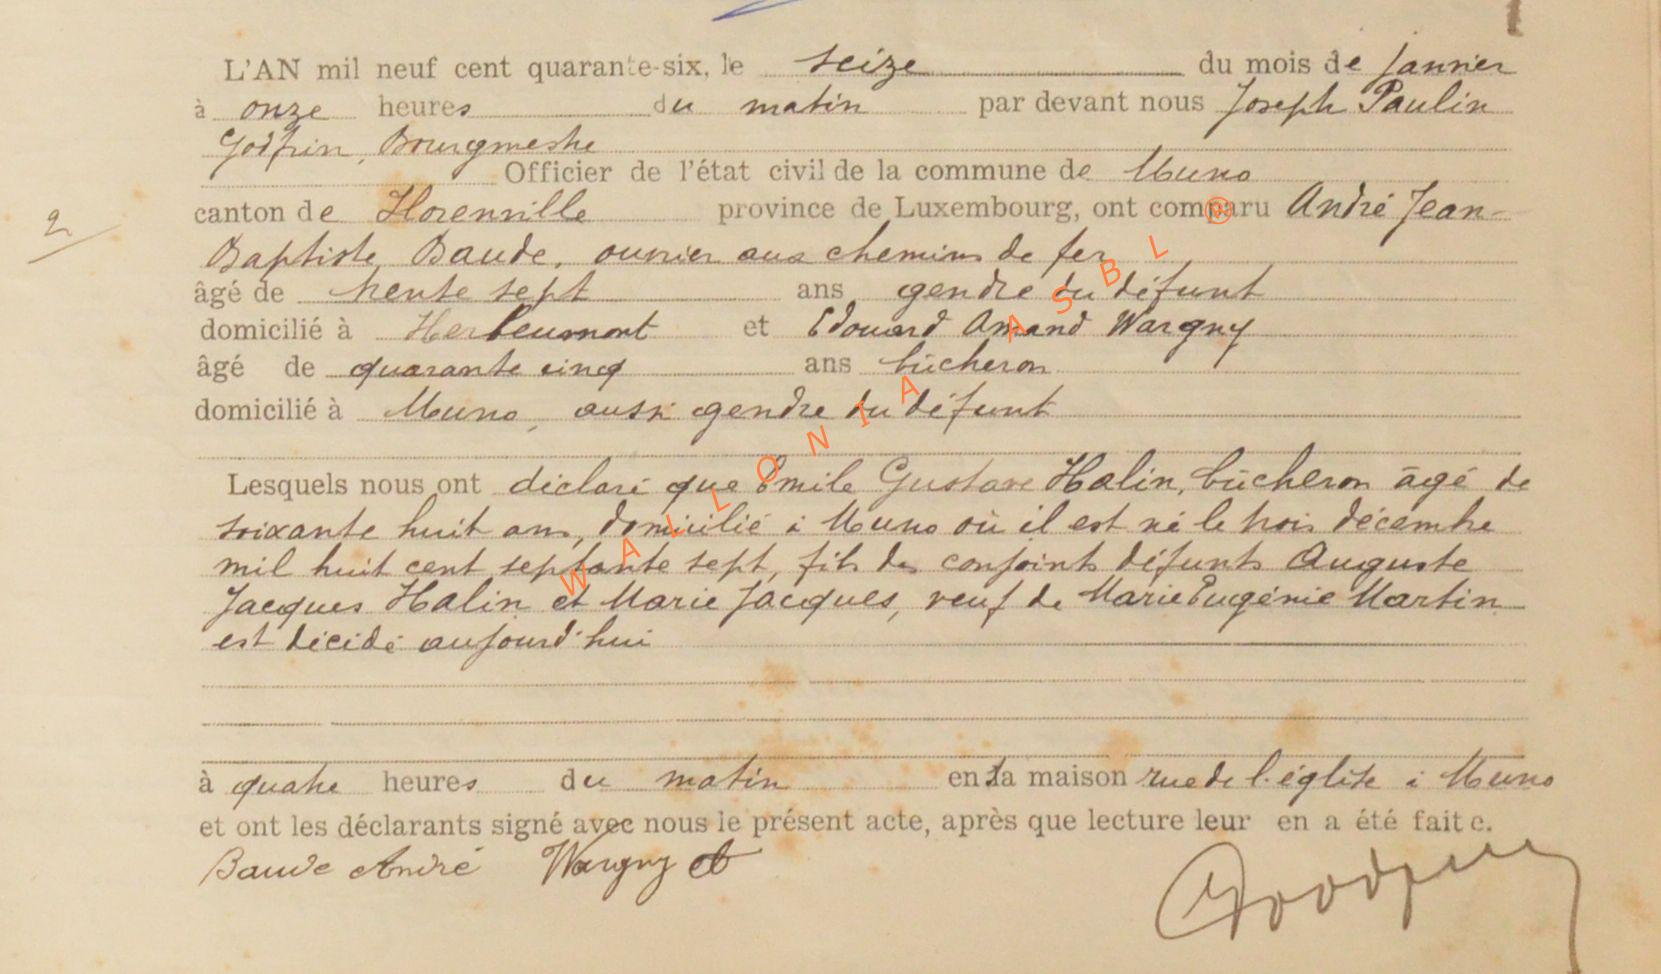 L'AN mil neuf cent quarante-six, le seize du mois de janvier
à onze heures du matin par devant nous Joseph Paulin
Godfrin, Bourgmestre
Officier de l'état civil de la commune de Muno
canton de Florenville province de Luxembourg, ont comparu André Jean-
2
Baptiste Baude, ouvrier aux chemins de fer
âgé de trente sept ans gendre du défunt
domicilié à Herbeumont et Edouard Amand Wargny
âgé de quarante cinq ans bûcheron
domicilié à Muno, aussi gendre du défunt
Lesquels nous ont déclaré que Emile Gustave Halin, bûcheron âgé de
soixante huit ans, domicilié à Muno où il est né le trois décembre
mil huit cent septante sept, fils des conjoints défunts Auguste
Jacques Halin et Marie Jacques, veuf de Marie Eugénie Martin
est décédé aujourd'hui
à quatre heures du matin en sa maison rue de l'église à Muno
et ont les déclarants signé avec nous le présent acte, après que lecture leur en a été faite.
Baude André Wargny
WALLONIA ASBL ®